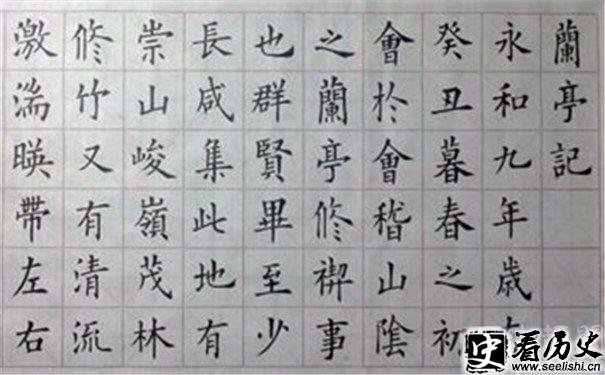 蘭亭記
永和九年歲
癸丑暮春之初
會於會稽山陰
之蘭亭修禊事
也群賢畢至少
長咸集此地有
崇山峻嶺茂林
修竹又有清流
激湍暎帶左右
史 看历史
www.seelishi.cn